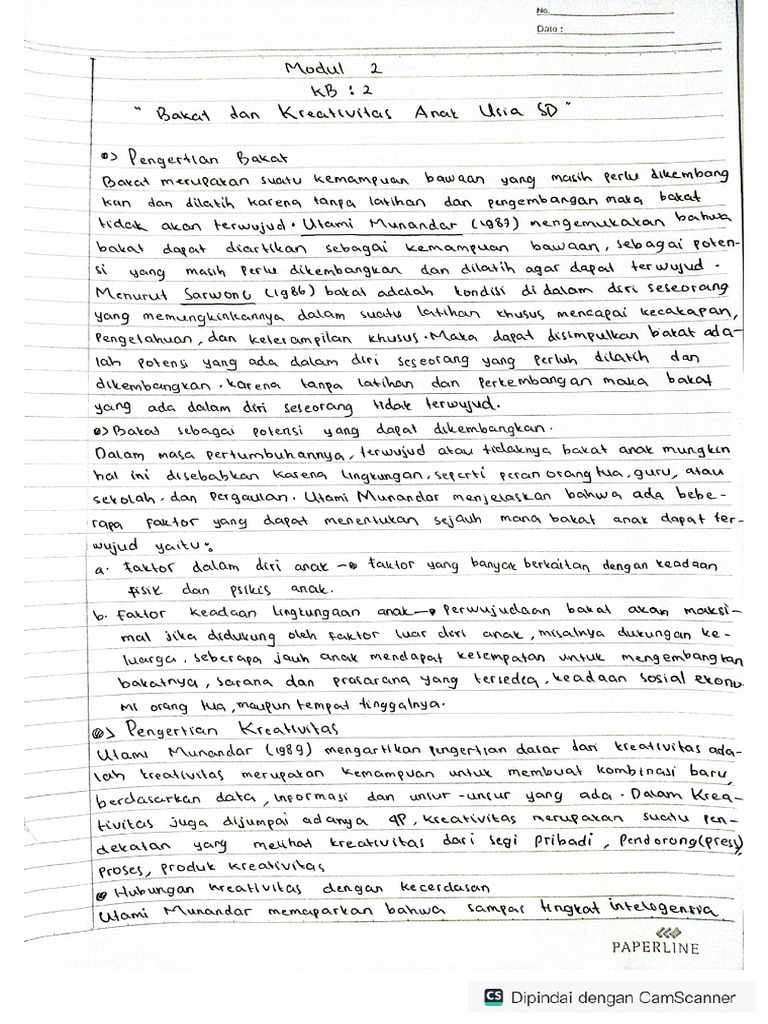 No.
Date :
Modul 2
KB : 2
" Bakat dan Kreativitas Anak Usia SD "
Pengertian Bakat
Bakat merupakan suatu kemampuan bawaan yang masih perlu dikembang
kan dan dilatih karena tanpa latihan dan pengembangan maka bakat
tidak akan terwujud. Utami Munandar (1987) mengemukakan bahwa
bakat dapat diartikan sebagai kemampuan bawaan, sebagai poten-
si yang masih perlu dikembangkan dan dilatih agar dapat terwujud.
Menurut Sarwono (1986) bakat adalah kondisi di dalam diri seseorang
yang memungkinkannya dalam suatu latihan khusus mencapai kecakapan,
Pengetahuan, dan keterampilan khusus. Maka dapat disimpulkan bakat ada-
lah potensi yang ada dalam diri seseorang yang perluh dilatih dan
dikembangkan. karena tanpa latihan dan Perkembangan maka bakat
yang ada dalam diri seseorang tidak terwujud.
Bakat sebagai potensi yang dapat dikembangkan.
Dalam masa pertumbuhannya, terwujud atau tidaknya bakat anak mungkin
hal ini disebabkan karena lingkungan, seperti peran orang tua, guru, atau
sekolah, dan pergaulan. Utami Munandar menjelaskan bahwa ada bebe-
rapa faktor yang dapat menentukan sejauh mana bakat anak dapat ter-
wujud yaitu :
a. faktor dalam diri anak → faktor yang banyak berkaitan dengan keadaan
fisik dan psikis anak.
b. faktor keadaan lingkungaan anak → perwujudaan bakat akan maksi-
mal jika didukung oleh faktor luar diri anak, misalnya dukungan ke-
luarga, seberapa jauh anak mendapat kesempatan untuk mengembangkan
bakatnya, sarana dan prasarana yang tersedia, keadaan sosial ekono
mi orang tua, maupun tempat tinggalnya.
Pengertian Kreativitas
Utami Munandar (1989) mengartikan pengertian dasar dari kreativitas ada-
lah kreativitas merupakan kemampuan untuk membuat kombinasi baru,
berdasarkan data, informasi dan unsur-unsur yang ada. Dalam Krea-
tivitas juga dijumpai adanya 4P, Kreativitas merupakan suatu pen-
dekatan yang melihat kreativitas dari segi Pribadi, Pendorong (press),
Proses, produk kreativitas
Hubungan kreativitas dengan kecerdasan
Utami Munandar memaparkan bahwa sampai tingkat intelegensia
PAPERLINE
CS Dipindai dengan CamScanner